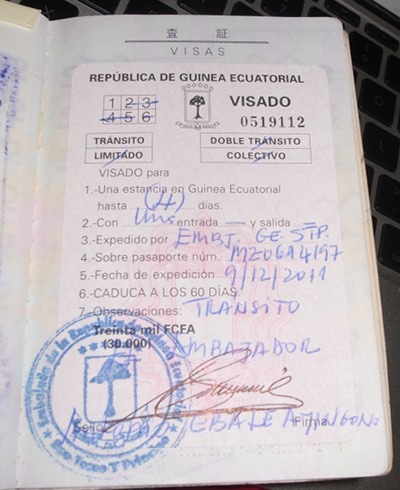 査 証
VISAS
REPÚBLICA DE GUINEA ECUATORIAL
1 2 3
4 5 6
VISADO
0519112
TRÁNSITO
LIMITADO
DOBLE TRÁNSITO
COLECTIVO
VISADO para
1.-Una estancia en Guinea Ecuatorial
hasta (4) días.
2.-Con una entrada — y salida
3.-Expedido por EMBJ. GE. STP.
4.-Sobre pasaporte núm. MZ0614197
5.-Fecha de expedición 9/12/2011
6.-CADUCA A LOS 60 DÍAS.
7.-Observaciones: TRANSITO
Treinta mil FCFA
(30.000)
EL EMBAJADOR
Embajada de la República de Guinea Ecuatorial
Sao Tome y Principe
Sello
Firma